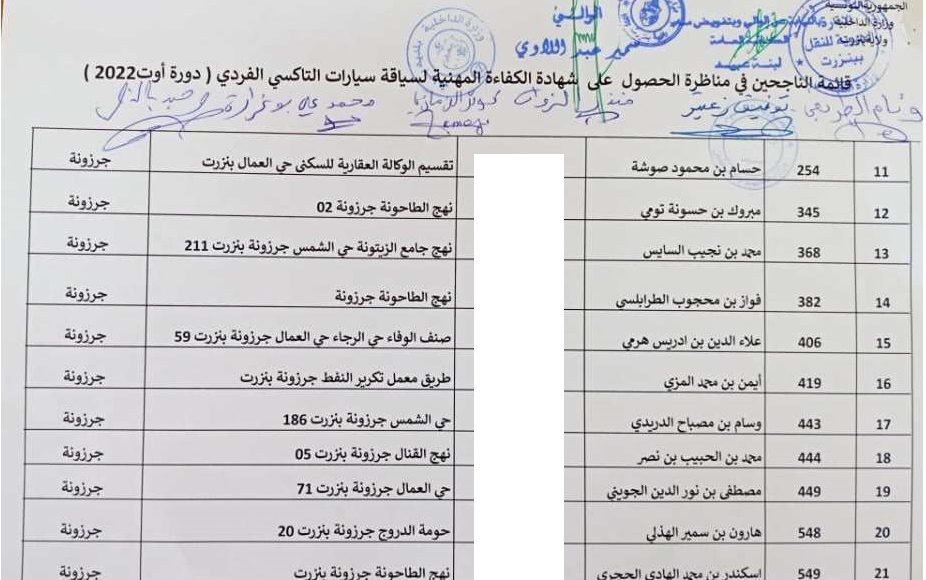 الجمهورية التونسية
وزارة الداخلية
ولاية بنزرت
الوالي
سمير عبد اللاوي
قائمة الناجحين في مناظرة الحصول على شهادة الكفاءة المهنية لسياقة سيارات التاكسي الفردي ( دورة أوت2022 )
11 254 حسام بن محمود صوشة تقسيم الوكالة العقارية للسكنى حي العمال بنزرت جرزونة
12 345 مبروك بن حسونة تومي نهج الطاحونة جرزونة 02 جرزونة
13 368 محمد بن نجيب السايس نهج جامع الزيتونة حي الشمس جرزونة بنزرت 211 جرزونة
14 382 فواز بن محجوب الطرابلسي نهج الطاحونة جرزونة جرزونة
15 406 علاء الدين بن ادريس هرمي صنف الوفاء حي الرجاء حي العمال جرزونة بنزرت 59 جرزونة
16 419 أيمن بن محمد المزي طريق معمل تكرير النفط جرزونة بنزرت جرزونة
17 443 وسام بن مصباح الدريدي حي الشمس جرزونة بنزرت 186 جرزونة
18 444 محمد بن الحبيب بن نصر نهج القنال جرزونة بنزرت 05 جرزونة
19 449 مصطفى بن نور الدين الجويني حي العمال جرزونة بنزرت 71 جرزونة
20 548 هارون بن سمير الهذلي حومة الدروج جرزونة بنزرت 20 جرزونة
21 549 اسكندر بن محمد الهادي الحجري نهج الطاحونة جرزونة بنزرت جرزونة